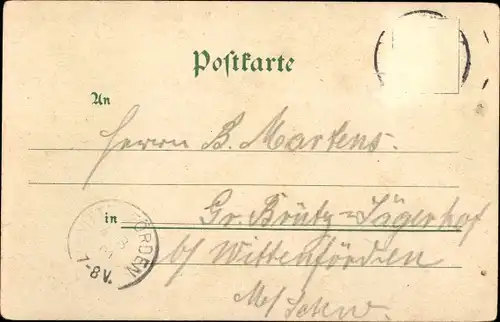 Postkarte
An
Herrn B. Martens.
in Gr. Brütz-Jägerhof
b/ Wittenförden
M/ Schw.
WITTENFÖRDEN
7-8V.